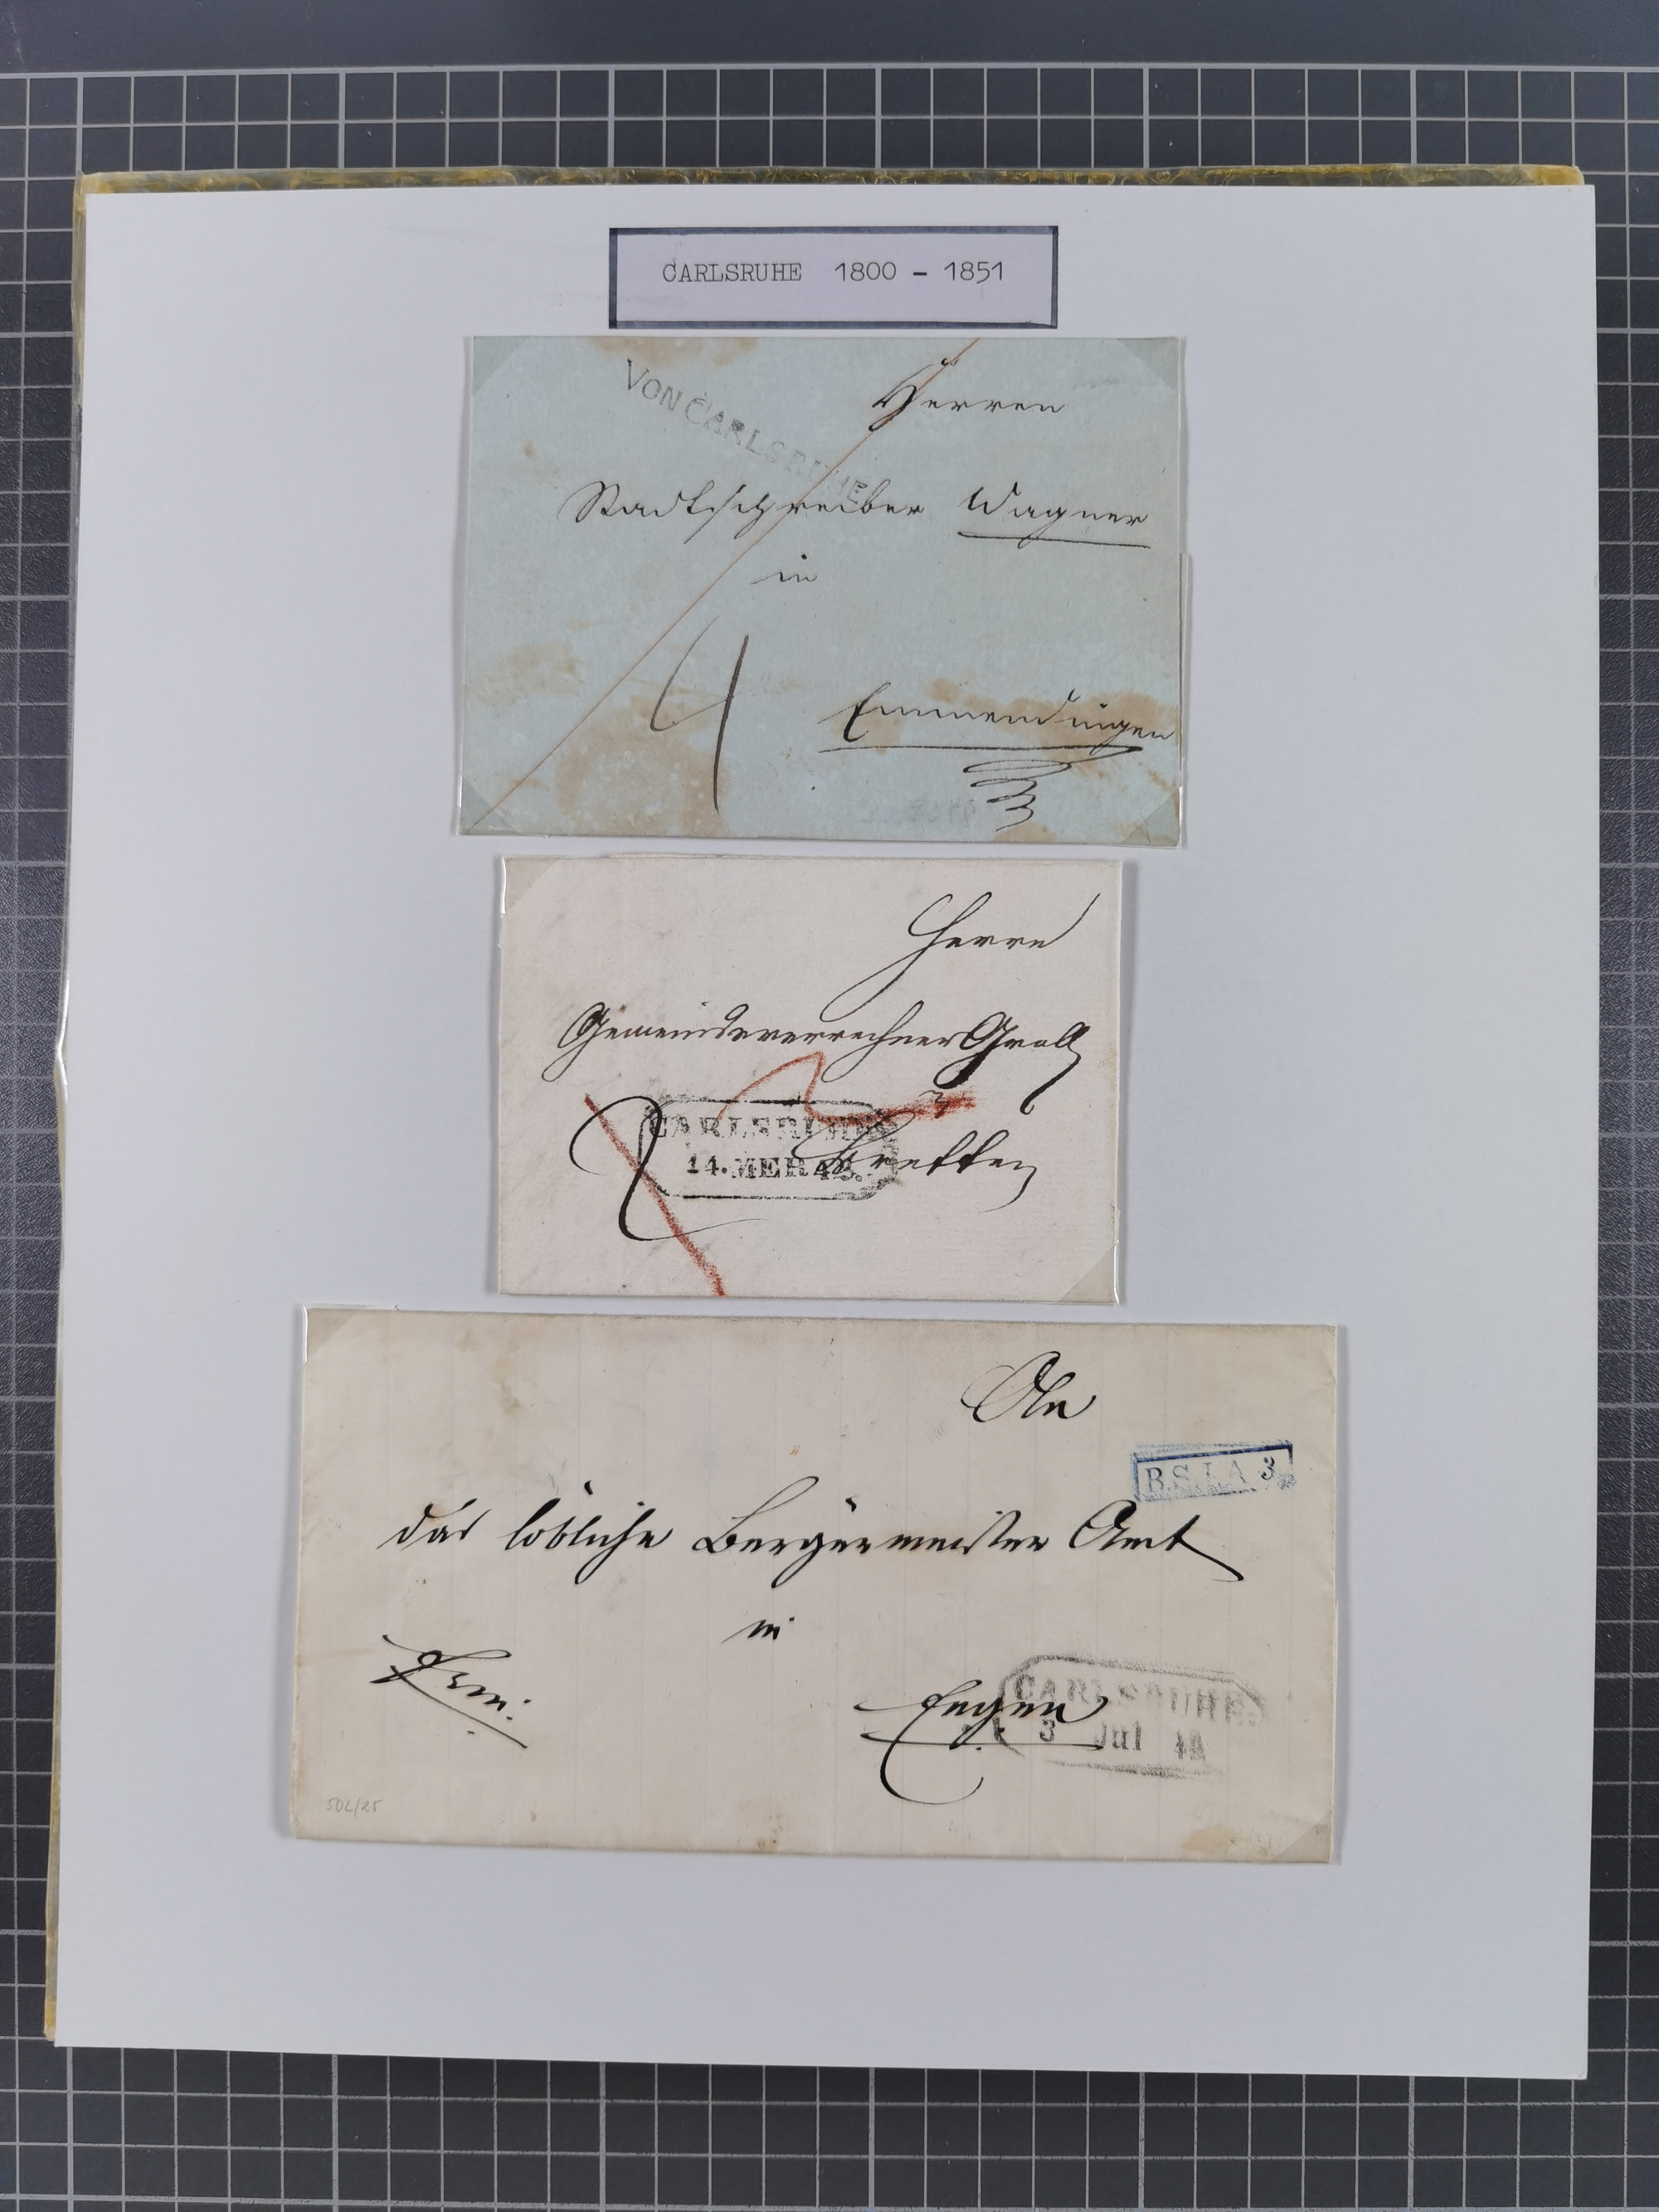 CARLSRUHE 1800 - 1851
VON CARLSRUHE
Herren
Stadtschreiber Wagner
in
4
Emmendingen
Herrn
Gemeindeverrechner Groll
CARLSRUHE
14. MER 42.
Bretten
An
B.S.I.A 3
das löbliche Bürgermeister Amt
in
Engen
CARLSRUHE.
3 Jul
50L/25